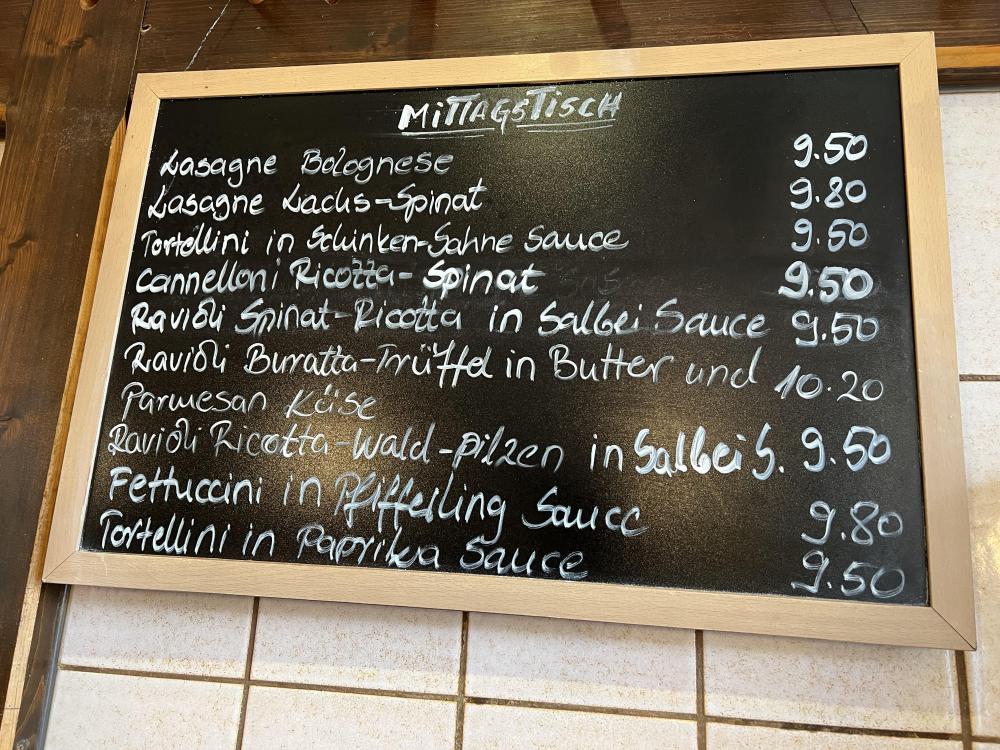 MITTAGSTISCH
Lasagne Bolognese 9.50
Lasagne Lachs-Spinat 9.80
Tortellini in Schinken-Sahne Sauce 9.50
Cannelloni Ricotta-Spinat 9.50
Ravioli Spinat-Ricotta in Salbei Sauce 9.50
Ravioli Burratta-Trüffel in Butter und 10.20
Parmesan Käse
Ravioli Ricotta-Wald-pilzen in Salbei S. 9.50
Fettuccini in Pfifferling Sauce 9.80
Tortellini in Paprika Sauce 9.50